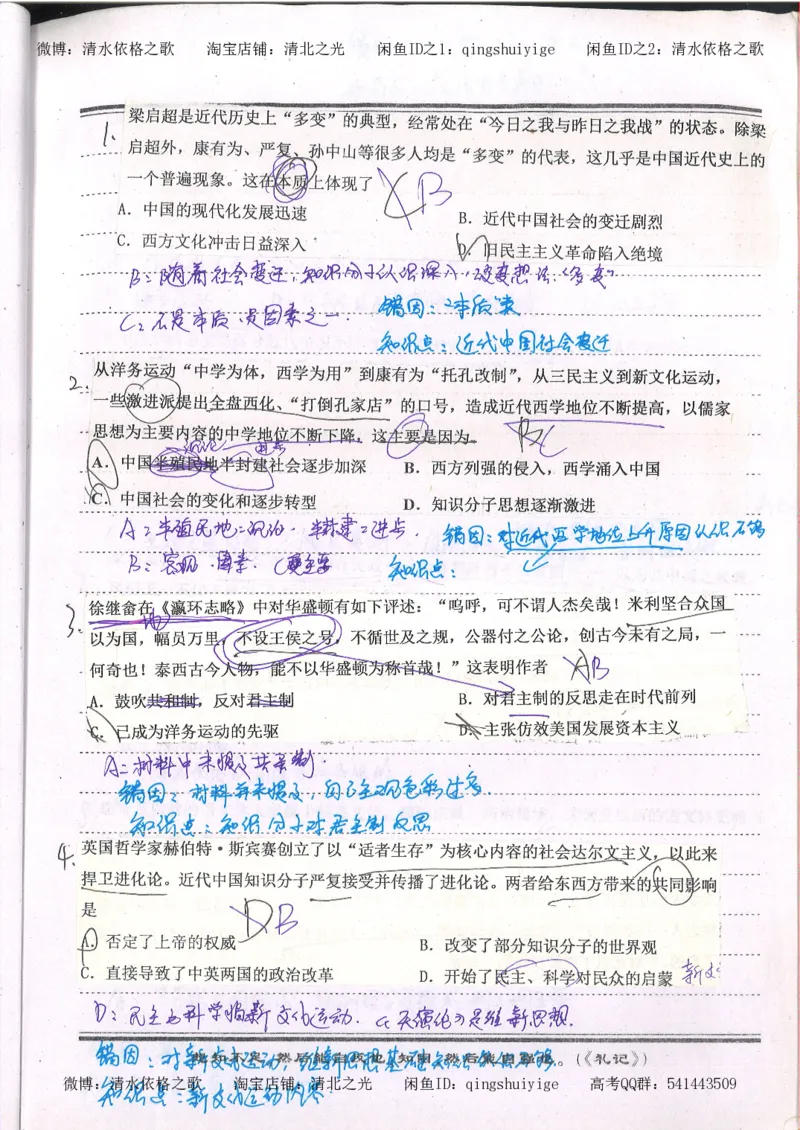 微博：清水依格之歌 淘宝店铺：清北之光 闲鱼ID之1：qingshuiyige 闲鱼ID之2：清水依格之歌
1. 梁启超是近代历史上“多变”的典型，经常处在“今日之我与昨日之我战”的状态。除梁
启超外，康有为、严复、孙中山等很多人均是“多变”的代表，这几乎是中国近代史上的
一个普遍现象。这在本质上体现了 B
A．中国的现代化发展迅速 B．近代中国社会的变迁剧烈
C．西方文化冲击日益深入 D．旧民主主义革命陷入绝境
B：随着社会变迁，知识分子认识深入，改变想法“多变”
C：不是本质，是因素之一．
错因：本质类
知识点：近代中国社会变迁
2. 从洋务运动“中学为体，西学为用”到康有为“托孔改制”，从三民主义到新文化运动，
一些激进派提出全盘西化、“打倒孔家店”的口号，造成近代西学地位不断提高，以儒家
思想为主要内容的中学地位不断下降。这主要是因为 C
A．中国半殖民地半封建社会逐步加深 B．西方列强的侵入，西学涌入中国
C．中国社会的变化和逐步转型 D．知识分子思想逐渐激进
A：半殖民地：沉沦．半封建：进步．
错因：对近代西学地位上升原因认识不够
B：客观 因素． C更主要
知识点：
3. 徐继畲在《瀛环志略》中对华盛顿有如下评述：“呜呼，可不谓人杰矣哉！米利坚合众国
以为国，幅员万里，不设王侯之号，不循世及之规，公器付之公论，创古今未有之局，一
何奇也！泰西古今人物，能不以华盛顿为称首哉！”这表明作者 B
A．鼓吹共和制，反对君主制 B．对君主制的反思走在时代前列
C．已成为洋务运动的先驱 D．主张仿效美国发展资本主义
A：材料中未提及共和制．
错因：材料并未提及，自己主观色彩过多
知识点：知识分子对君主制反思
4. 英国哲学家赫伯特·斯宾赛创立了以“适者生存”为核心内容的社会达尔文主义，以此来
捍卫进化论。近代中国知识分子严复接受并传播了进化论。两者给东西方带来的共同影响
是 B
A．否定了上帝的权威 B．改变了部分知识分子的世界观
C．直接导致了中英两国的政治改革 D．开始了民主、科学对民众的启蒙 新文
D：民主与科学指新文化运动． 《天演论》是维新思想．
错因：对新文化运动，维新思想基础知识
然后能自反也 知困 然后能自强也。（《礼记》）
知识点：新文化运动内容
微博：清水依格之歌 淘宝店铺：清北之光 闲鱼ID：qingshuiyige 高考QQ群：541443509